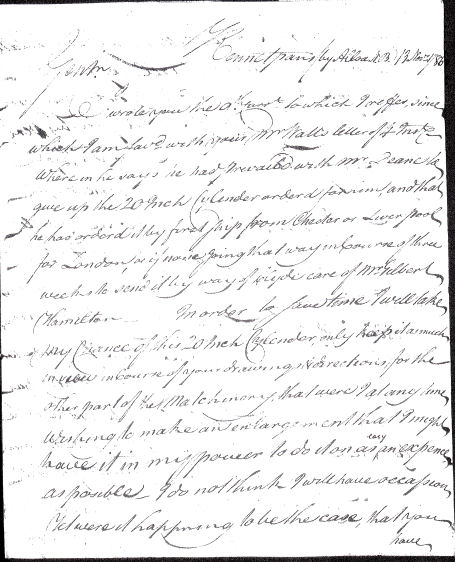 Kennetpans by Alloa N.B. 13 Novr. 1786
Gentn.
I wrote you the 9th Currt. to which I reffer, since
which I am favd. with your Mr Watts letter of 7 Inst.
where in he says he had Prevailed with Mr. Deane to
give up the 20 Inch Cylender orderd for him, and that
he has orderd it by first ship from Chester or Liverpool
for London or if none going that way in course of three
weeks to send it by way of Clyde care of Mr. Gilbert
Hamilton In order to save time I will take
my Chance of this 20 Inch Cylender, only keep it as much
in view in course of your drawings & directions for the
other part of the Matchinory, that were I at any time
wishing to make an enlargement that I might
have it in my power to do it on as easy an expence
as posible I do not think I will have occassion
Yet were it happning to be the case, that you
have